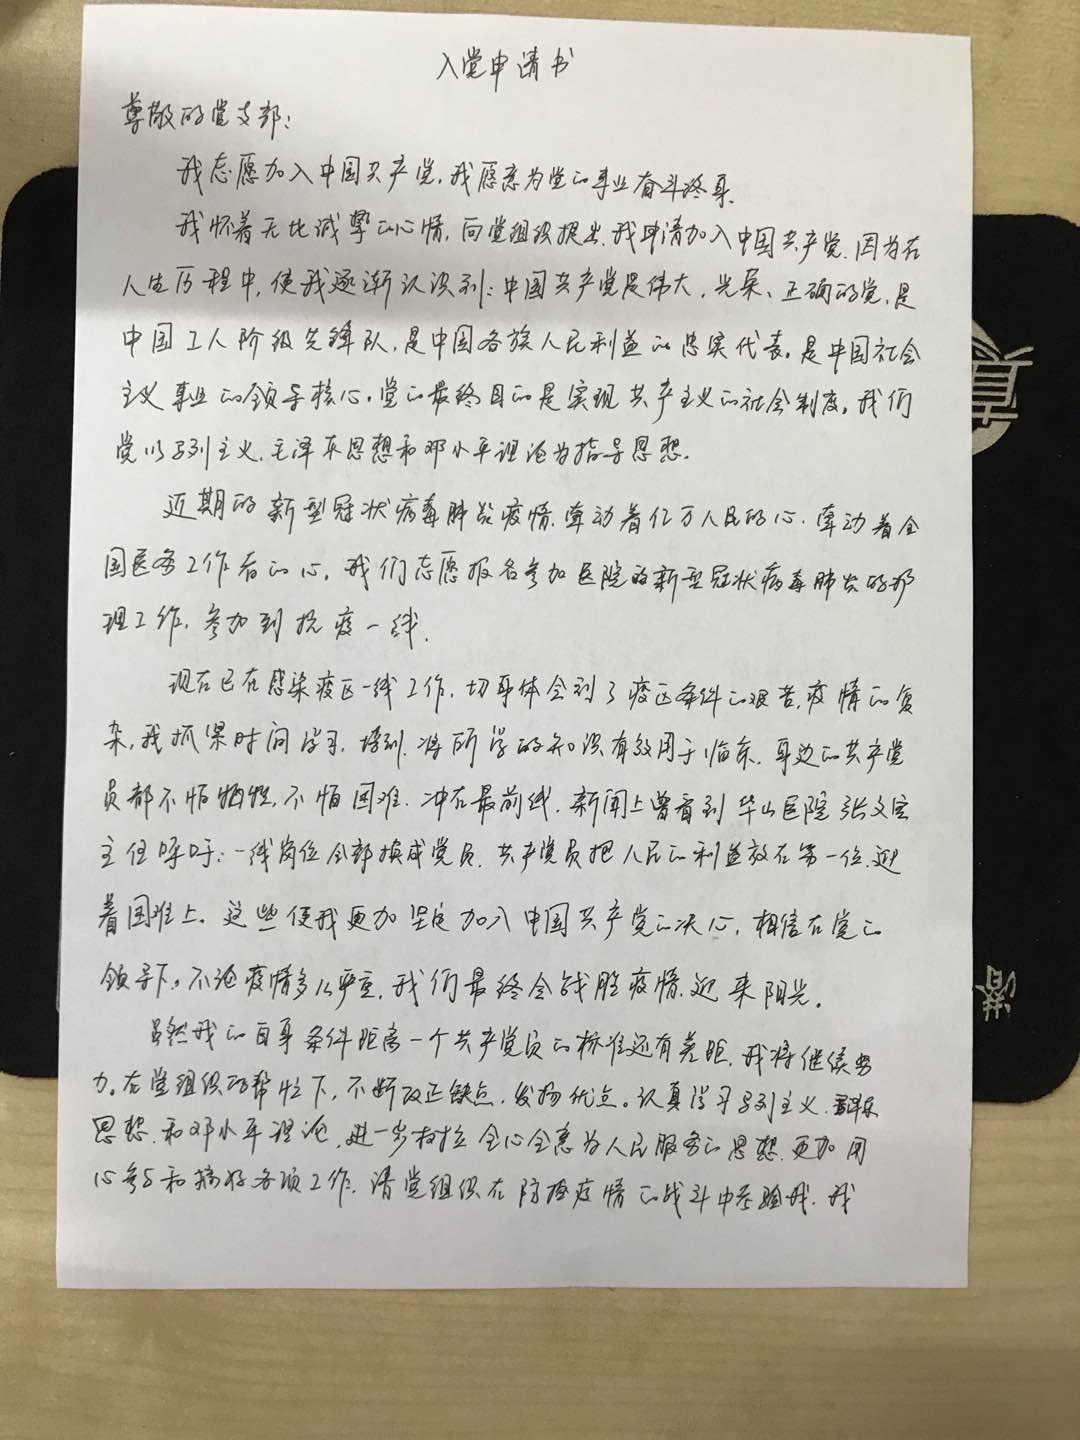 入党申请书
尊敬的党支部：
我志愿加入中国共产党，我愿意为党的事业奋斗终身。
我怀着无比诚挚的心情，向党组织提出，我申请加入中国共产党，因为在
人生历程中，使我逐渐认识到：中国共产党是伟大、光荣、正确的党，是
中国工人阶级先锋队，是中国各族人民利益的忠实代表。是中国社会
主义事业的领导核心。党的最终目的是实现共产主义的社会制度。我们
党以马列主义、毛泽东思想和邓小平理论为指导思想。
近期的新型冠状病毒肺炎疫情，牵动着亿万人民的心，牵动着全
国医务工作者的心，我们志愿报名参加医院的新型冠状病毒肺炎的
理工作，参加到抗疫一线，
现在已在感染疫区一线工作，切身体会到了疫区条件的艰苦，疫情的复
杂，我抓紧时间学习、培训，将所学的知识有效用于临床，身边的共产党
员都不怕牺牲，不怕困难，冲在最前线，新闻上曾看到华山医院张文宏
主任呼吁：一线岗位全部换成党员，共产党员把人民的利益放在第一位，迎
着困难上。这些使我更加坚定加入中国共产党的决心，相信在党的
领导下。不论疫情多么严重，我们最终会战胜疫情，迎来阳光。
虽然我的自身条件距离一个共产党员的标准还有差距，我将继续努
力。在党组织的帮忙下，不断改正缺点，发扬优点。认真学习马列主义、毛泽东
思想、和邓小平理论，进一步树立全心全意为人民服务的思想，更加用
心参与和搞好各项工作，请党组织在防控疫情的战斗中考验我，我
真
港